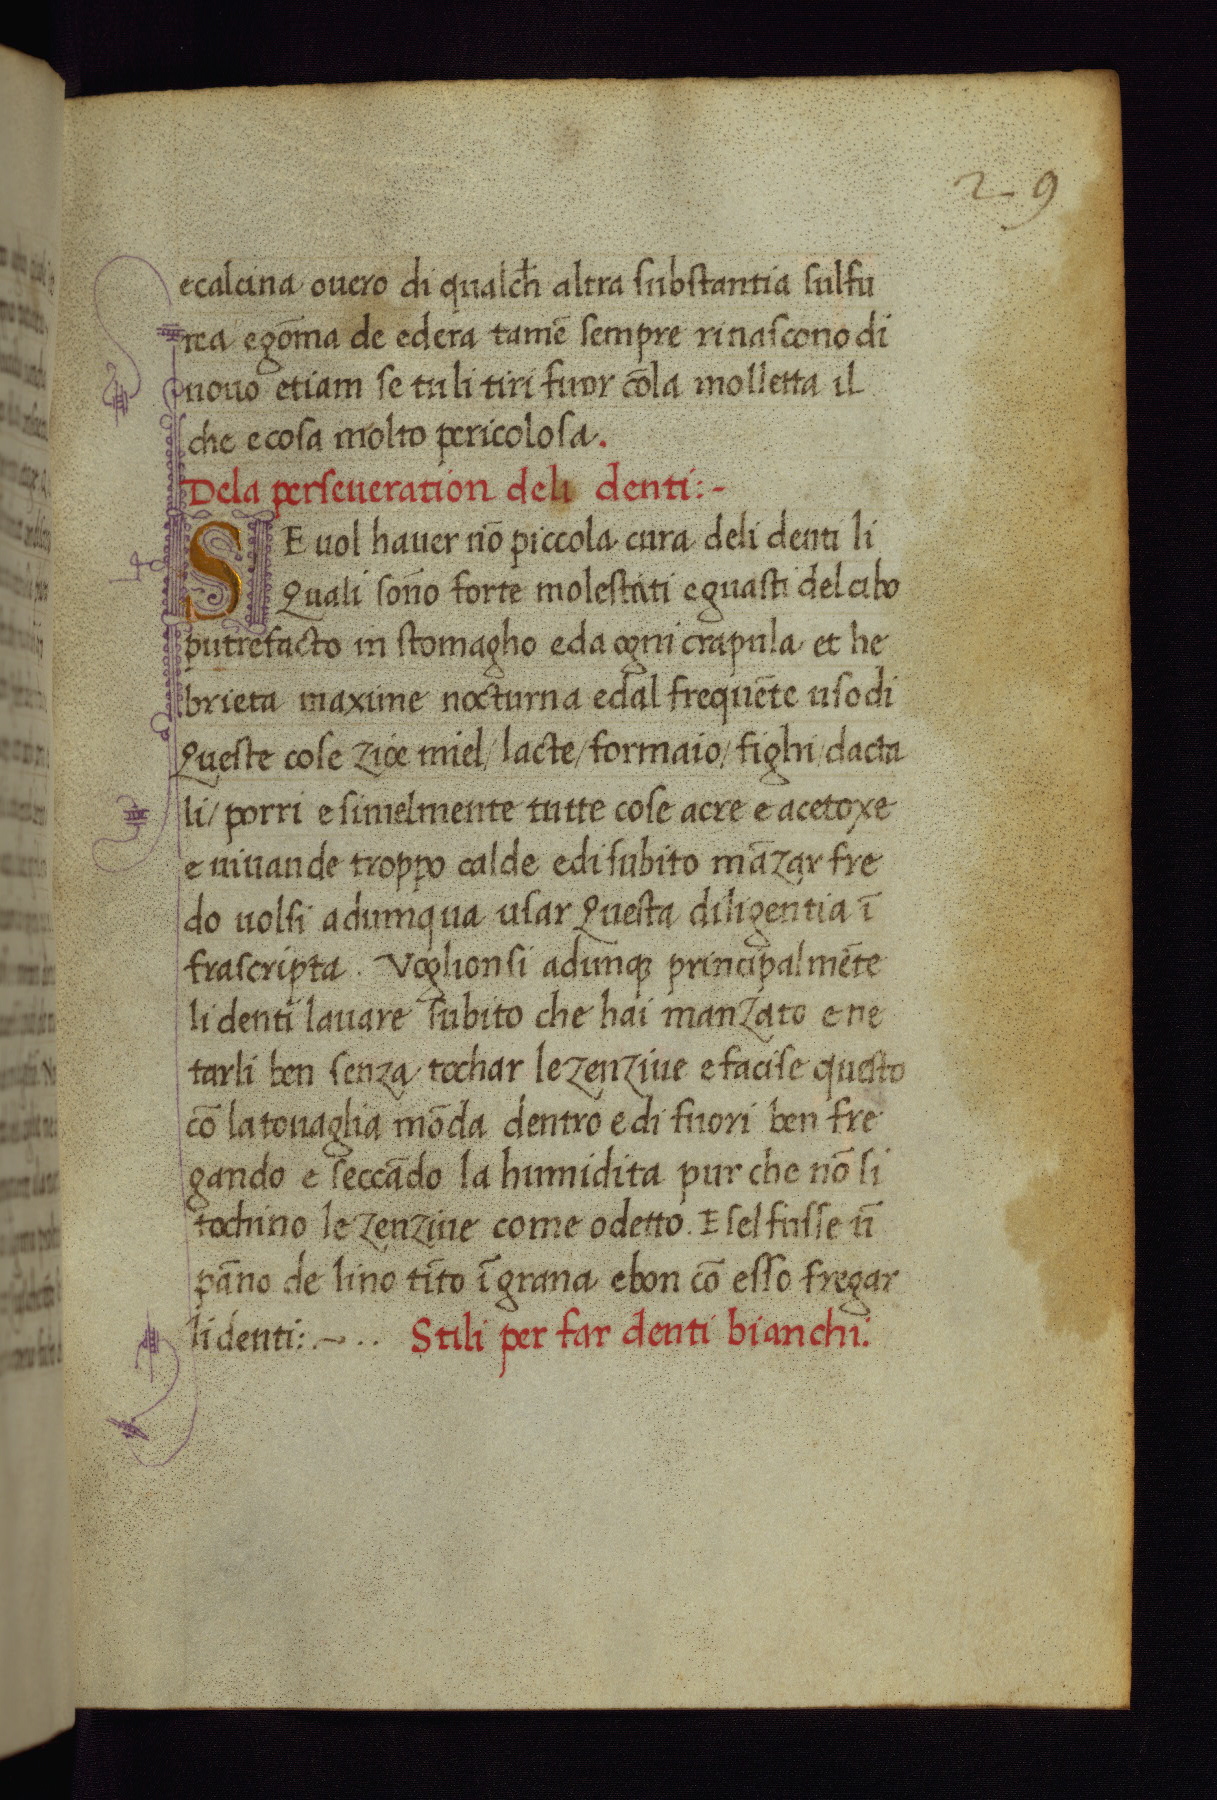 29
e calcina ouero di qualch̄ altra substantia sulfu
rea e gōma de edera tamē sempre rinascono di
nouo etiam se tu li tiri fuor cō la molletta il
che e cosa molto pericolosa.
Dela perseueration deli denti:-
SE uol hauer nō piccola cura deli denti li
Quali sōno forte molestati e guasti del cibo
putrefacto in stomagho e da ogni crapula et he
brieta maxime nocturna e dal frequēte uso di
Queste cose zioe miel/ lacte/ formaio/ fighi/ dacta
li/ porri e simelmente tutte cose acre e acetoxe
e uiuande troppo calde e di subito māzar fre
do uolsi adumqua usar Questa diligentia ī
frascripta. Voglionsi adunqȝ principalmēte
li denti lauare subito che hai manzato e ne
tarli ben senza tochar le zenziue e facise questo
cō la touaglia mōda dentro e di fuori ben fre
gando e seccādo la humidita pur che nō si
tochino le zenziue come o detto. E sel fusse ū
pāno de lino tīto ī grana e bon cō esso fregar
li denti:.-.. Stili per far denti bianchi: